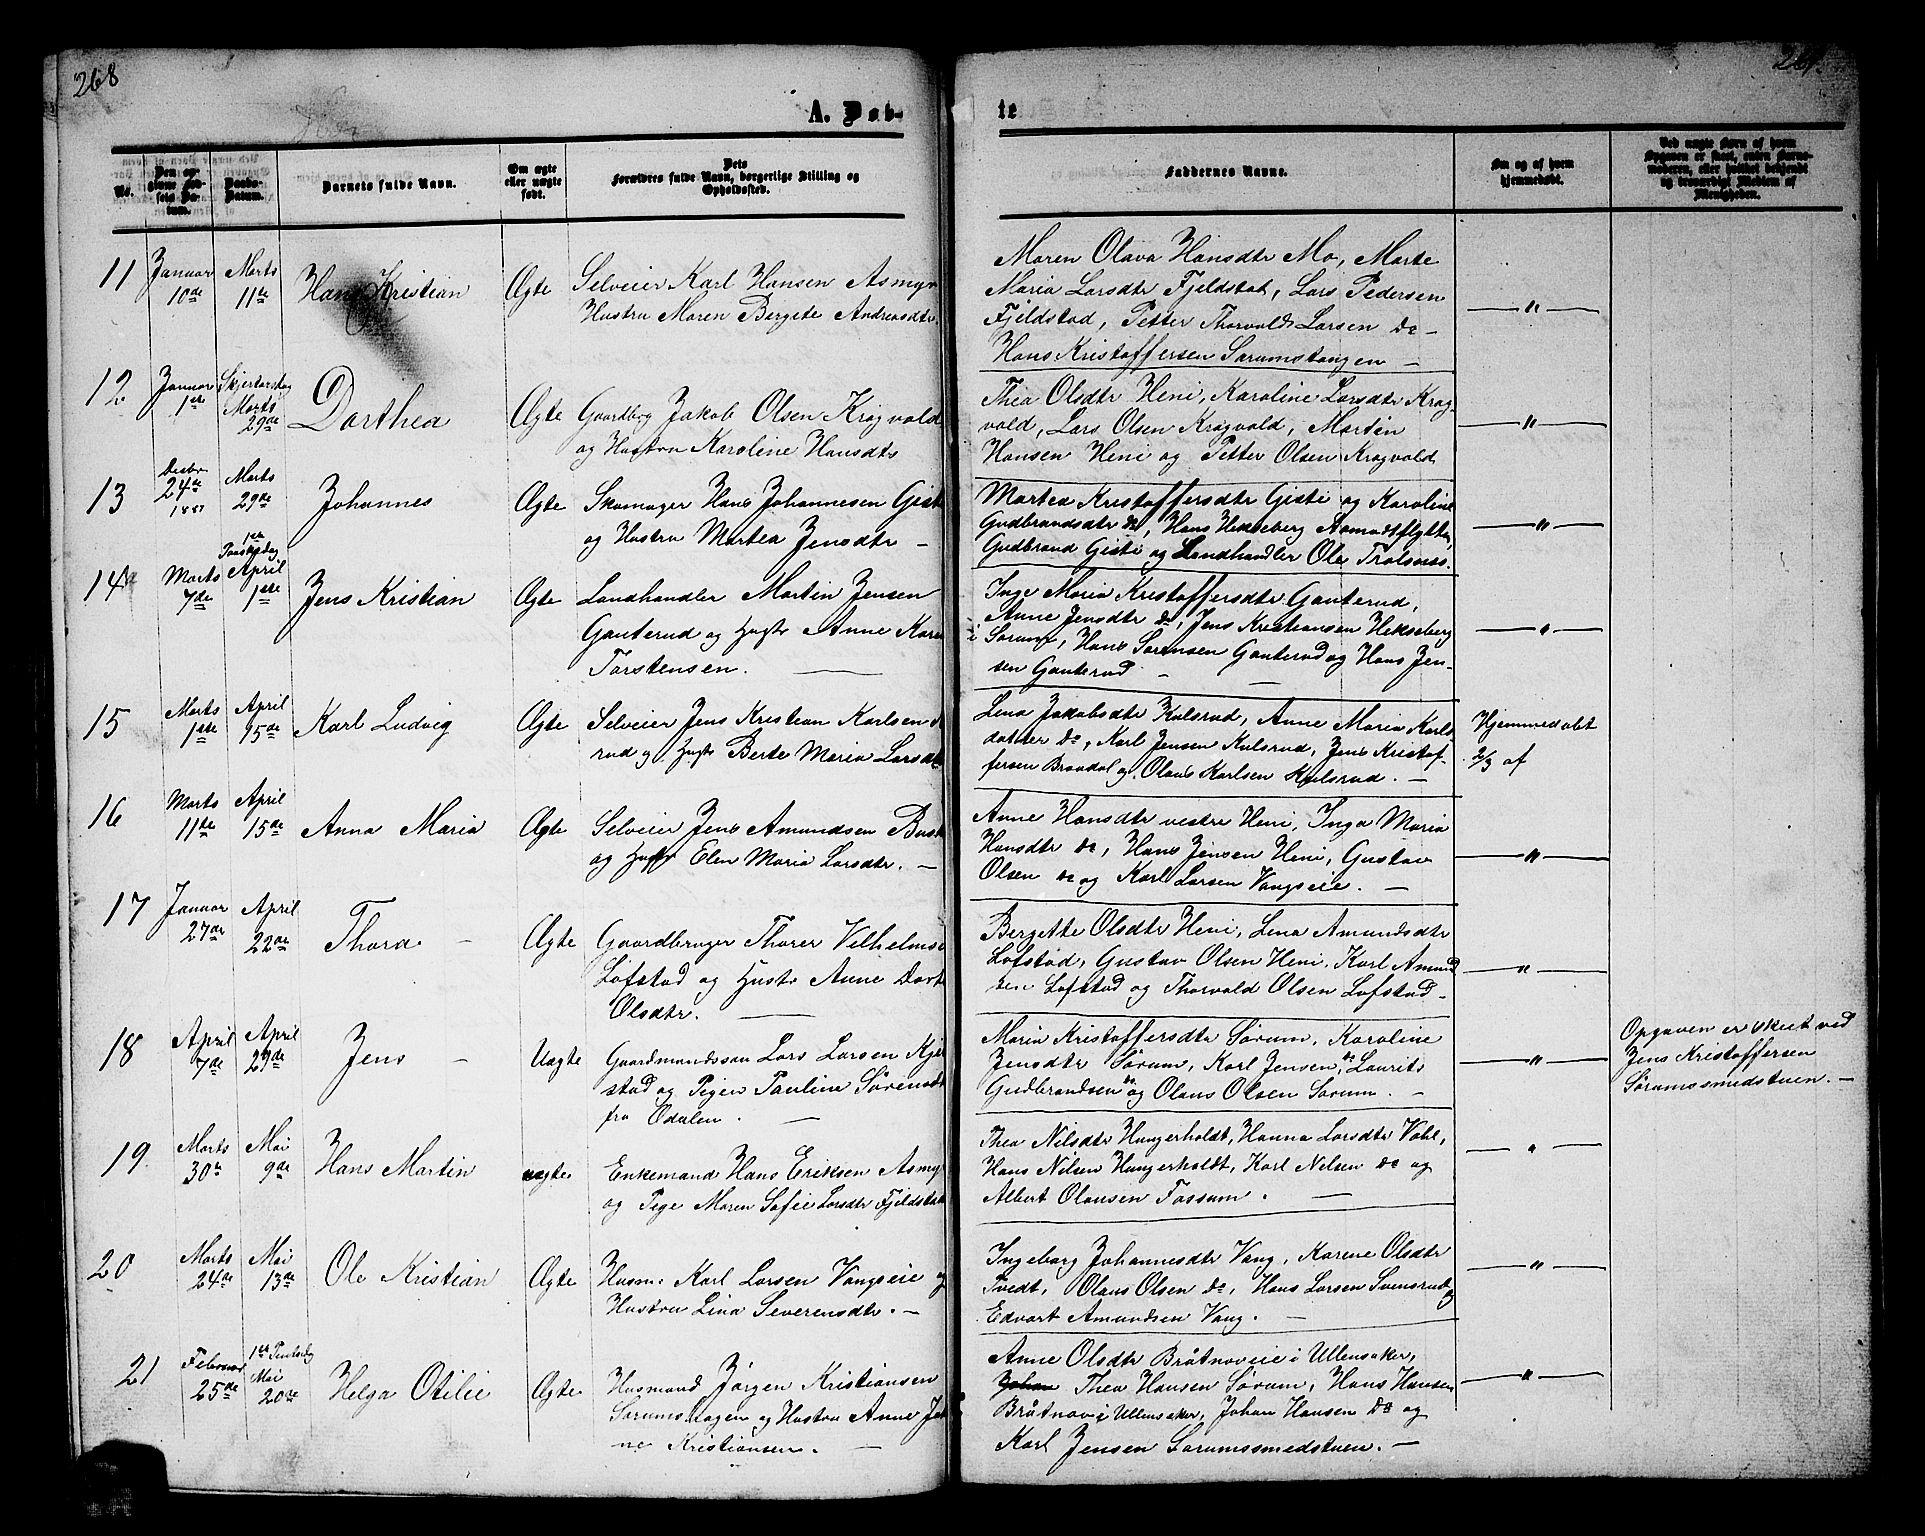 268
269
A. Døb-
te
No.
Den opgivne Fødsels Datum.
Daabs-Datum.
Barnets fulde Navn.
Om ægte eller uægte født.
Dets Forældres fulde Navn, borgerlige Stilling og Opholdssted.
Faddernes Navne.
Om og af hvem hjemmedøbt.
11 Januar 10de Marts 11te Hans Kristian Ægte
Selveier Karl Hansen Asmyr
Hustru Maren Bergete Andreasdtr
Maren Olava Hansdtr Mo, Marte
Maria Larsdtr Fjeldstad, Lars Pedersen
Fjeldstad, Petter Thorvald Larsen do
Hans Kristoffersen Sørumstangen —
— " —
12 Januar 1ste Skjertorsdag Marts 29de Dorthea Ægte
Gaardbrg Jakob Olsen Kragvold
og Hustru Karoline Hansdtr
Thea Olsdtr Heni, Karoline Larsdtr Krag-
vold, Lars Olsen Kragvold, Martin
Hansen Heni og Petter Olsen Kragvold
— " —
13 Decbr 24de 1887 Marts 29de Johannes Ægte
Skomager Hans Johannesen Giste
og Hustru Martea Jensdtr —
Martea Kristoffersdtr Giste og Karoline
Gudbrandsdtr do, Hans Hekseberg Asmudsflytten,
Gudbrand Giste og Landhandler Ole Trolsnes.
— " —
14 Marts 7de 1ste Paaskedag April 1ste Jens Kristian Ægte
Landhandler Martin Jensen
Gauterud og Hustr Anne Kare
Torstensen. —
Inge Maria Kristoffersdtr Gauterud,
Anne Jensdtr do, Jens Kristiansen Hekseberg
i Sørum, Hans Sørensen Gauterud og Hans Jen-
sen Gauterud — —
— " —
15 Marts 1ste April 15de Karl Ludvig Ægte
Selveier Jens Kristian Karlsen
rud og Hustr Berte Maria Larsdt
Lena Jakobsdtr Kulsrud, Anne Maria Karls-
datter do, Karl Jensen Kulsrud, Jens Kristof-
fersen Braadal og Olaus Karlsen Kulsrud. —
Hjemmedøbt
2/3 af
16 Marts 11te April 15de Anna Maria Ægte
Selveier Jens Amundsen
og Hustr Elen Maria Larsdtr. —
Anne Hansdtr vestre Heni, Inga Maria
Hansdtr do, Hans Jensen Heni, Gustav
Olsen do og Karl Larsen Vangseie. —
— " —
17 Januar 27de April 22de Thora — Ægte
Gaardbruger Thorer Vilhelms
Løfstad og Hustr Anne Dort
Olsdtr. —
Bergette Olsdtr Heni, Lena Amundsdtr
Løfstad, Gustav Olsen Heni, Karl Amund
sen Løfstad og Thorvald Olsen Løfstad —
— " —
18 April 7de April 29de Jens — Uægte
Gaardmandssøn Lars Larsen Kjel
stad og Pigen Pauline Sørensdt
fra Odalen. —
Maria Kristoffersdtr Sørum, Karoline
Jensdtr Sørum, Karl Jensen do, Laurits
Gudbrandsen do og Olaus Olsen Sørum. —
— " —
Opgaven er skeet ved
Jens Kristoffersen
Sørumssmedstuen. —
19. Marts 30te Mai 9de Hans Martin uægte
Enkemand Hans Eriksen Asmyr
og Pige Maren Sofie Larsdtr Fjeldstad
Thea Nilsdtr Hungerholdt, Hanna Larsdtr Vahl,
Hans Nilsen Hungerholdt, Karl Nelsen do og
Albert Olausen Fossum. —
— " —
20 Marts 24de Mai 13de Ole Kristian Ægte
Husm. Karl Larsen Vangseie og
Hustru Lina Severensdtr. —
Ingeborg Johannesdtr Vang, Karene Olsdtr
Tvedt, Olaus Olsen do, Hans Larsen Svensrud og
Edvart Amundsen Vang. —
— " —
21 Februar 25de 1ste Pintsedag Mai 20de Helga Otilie Ægte
Husmand Jørgen Kristiansen
Sørumshagen og Hustru Anne Jo
ne Kristiansen. —
Anne Olsdtr Bråtnoveie i Ullensaker,
Johan Thea Hansen Sørum, Hans Hansen
Bråtnov i Ullensaker, Johan Hansen do og
Karl Jensen Sørumssmedstuen. —
— " —